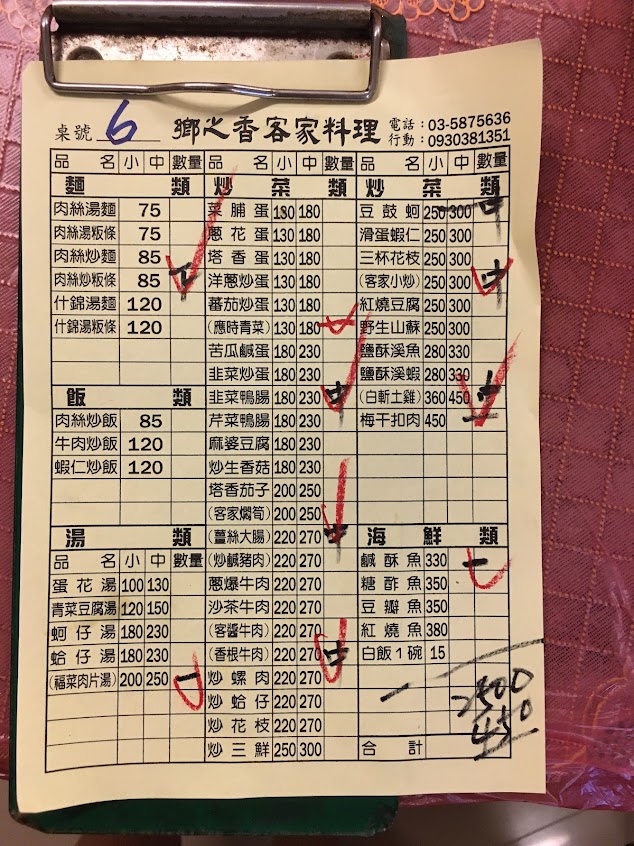 桌號 6 鄉之香客家料理 電話：03-5875636
行動：0930381351
品名 小 中 數量
麵類
肉絲湯麵 75
肉絲湯粄條 75
肉絲炒麵 85
肉絲炒粄條 85
什錦湯麵 120
什錦湯粄條 120
飯類
肉絲炒飯 85
牛肉炒飯 120
蝦仁炒飯 120
湯類
品名 小 中 數量
蛋花湯 100 130
青菜豆腐湯 120 150
蚵仔湯 180 230
蛤仔湯 180 230
(福菜肉片湯) 200 250
品名 小 中 數量
炒菜
菜脯蛋 130 180
蔥花蛋 130 180
塔香蛋 130 180
洋蔥炒蛋 130 180
蕃茄炒蛋 130 180
(應時青菜) 130 180
苦瓜鹹蛋 180 230
韭菜炒蛋 180 230
韭菜鴨腸 180 230 中
芹菜鴨腸 180 230
麻婆豆腐 180 230
炒生香菇 180 230
塔香茄子 200 250
(客家燜筍) 200 250
(薑絲大腸) 220 270 中
(炒鹹豬肉) 220 270
蔥爆牛肉 220 270
沙茶牛肉 220 270
(客醬牛肉) 220 270
(香根牛肉) 220 270 中
炒螺肉 220 270
炒蛤仔 220 270
炒花枝 220 270
炒三鮮 250 300
品名 小 中 數量
炒類
豆鼓蚵 250 300 中
滑蛋蝦仁 250 300
三杯花枝 250 300
(客家小炒) 250 300 中
紅燒豆腐 250 300
野生山蘇 250 300
鹽酥溪魚 280 330
鹽酥溪蝦 280 330
(白斬土雞) 360 450
梅干扣肉 450
海鮮類
鹹酥魚 330 一
糖酢魚 350
豆瓣魚 350
紅燒魚 380
白飯1碗 15
2500
450
合計